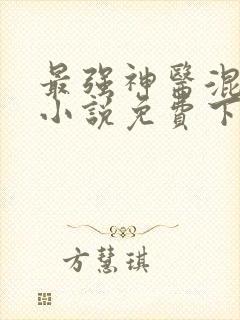 最强神醫混
小說免費下
方慧琪